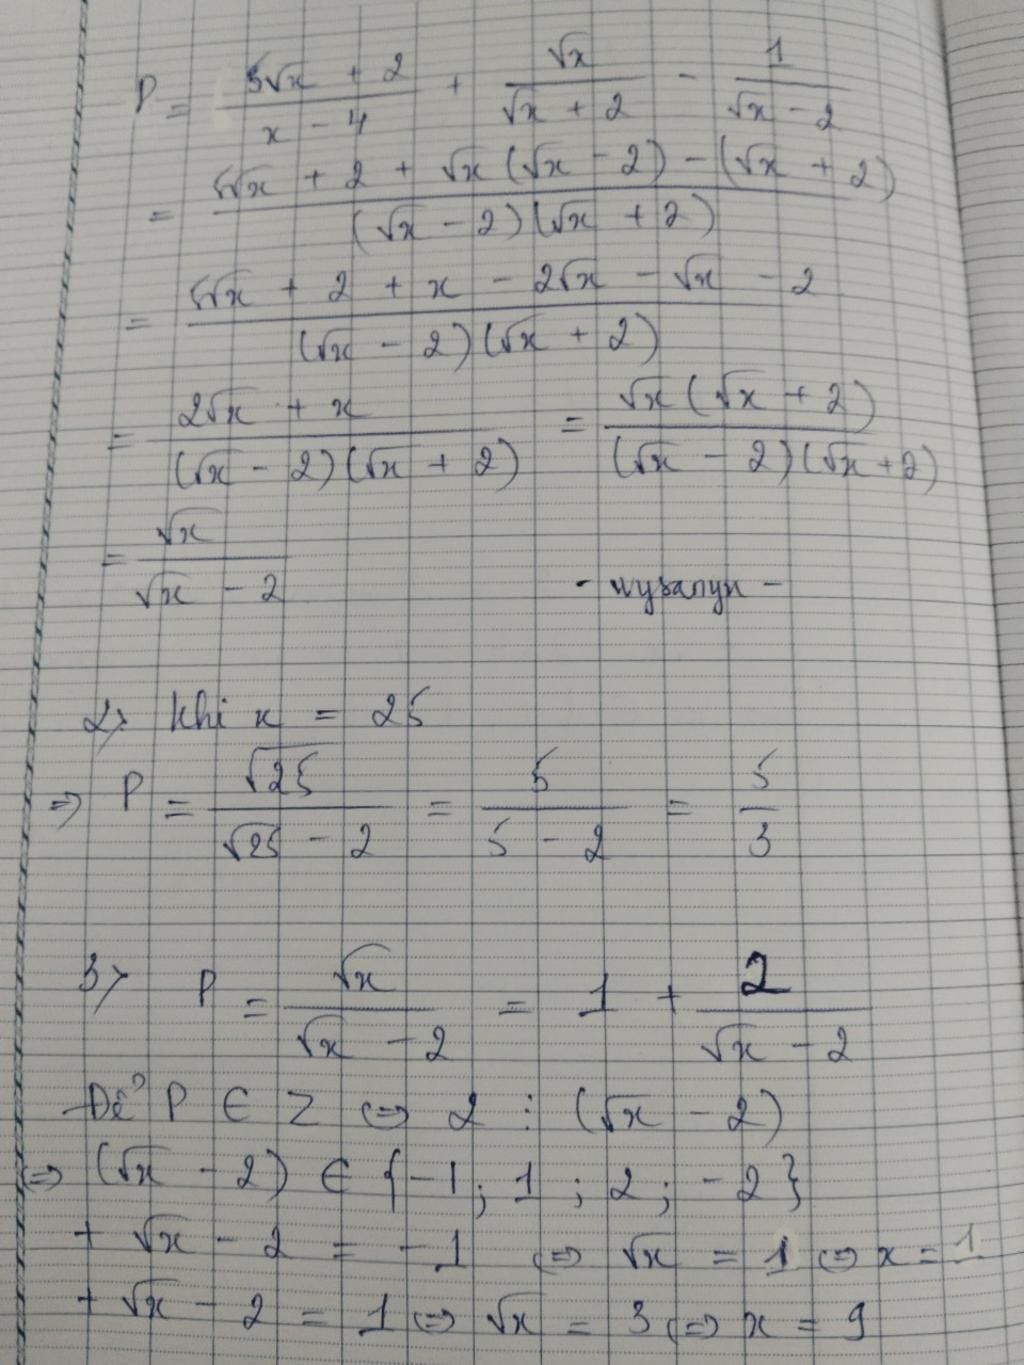 P = (5√x + 2)/(x - 4) + √x/(√x + 2) - 1/(√x - 2)
= (5√x + 2 + √x(√x - 2) - (√x + 2))/((√x - 2)(√x + 2))
= (5√x + 2 + x - 2√x - √x - 2)/((√x - 2)(√x + 2))
= (2√x + x)/((√x - 2)(√x + 2)) = (√x(√x + 2))/((√x - 2)(√x + 2))
= √x/(√x - 2)
2> khi x = 25
=> P = √25/(√25 - 2) = 5/(5 - 2) = 5/3
3> P = √x/(√x - 2) = 1 + 2/(√x - 2)
Để P ∈ Z <=> 2 ⋮ (√x - 2)
<=> (√x - 2) ∈ {-1; 1; 2; -2}
+ √x - 2 = -1 <=> √x = 1 <=> x = 1
+ √x - 2 = 1 <=> √x = 3 <=> x = 9